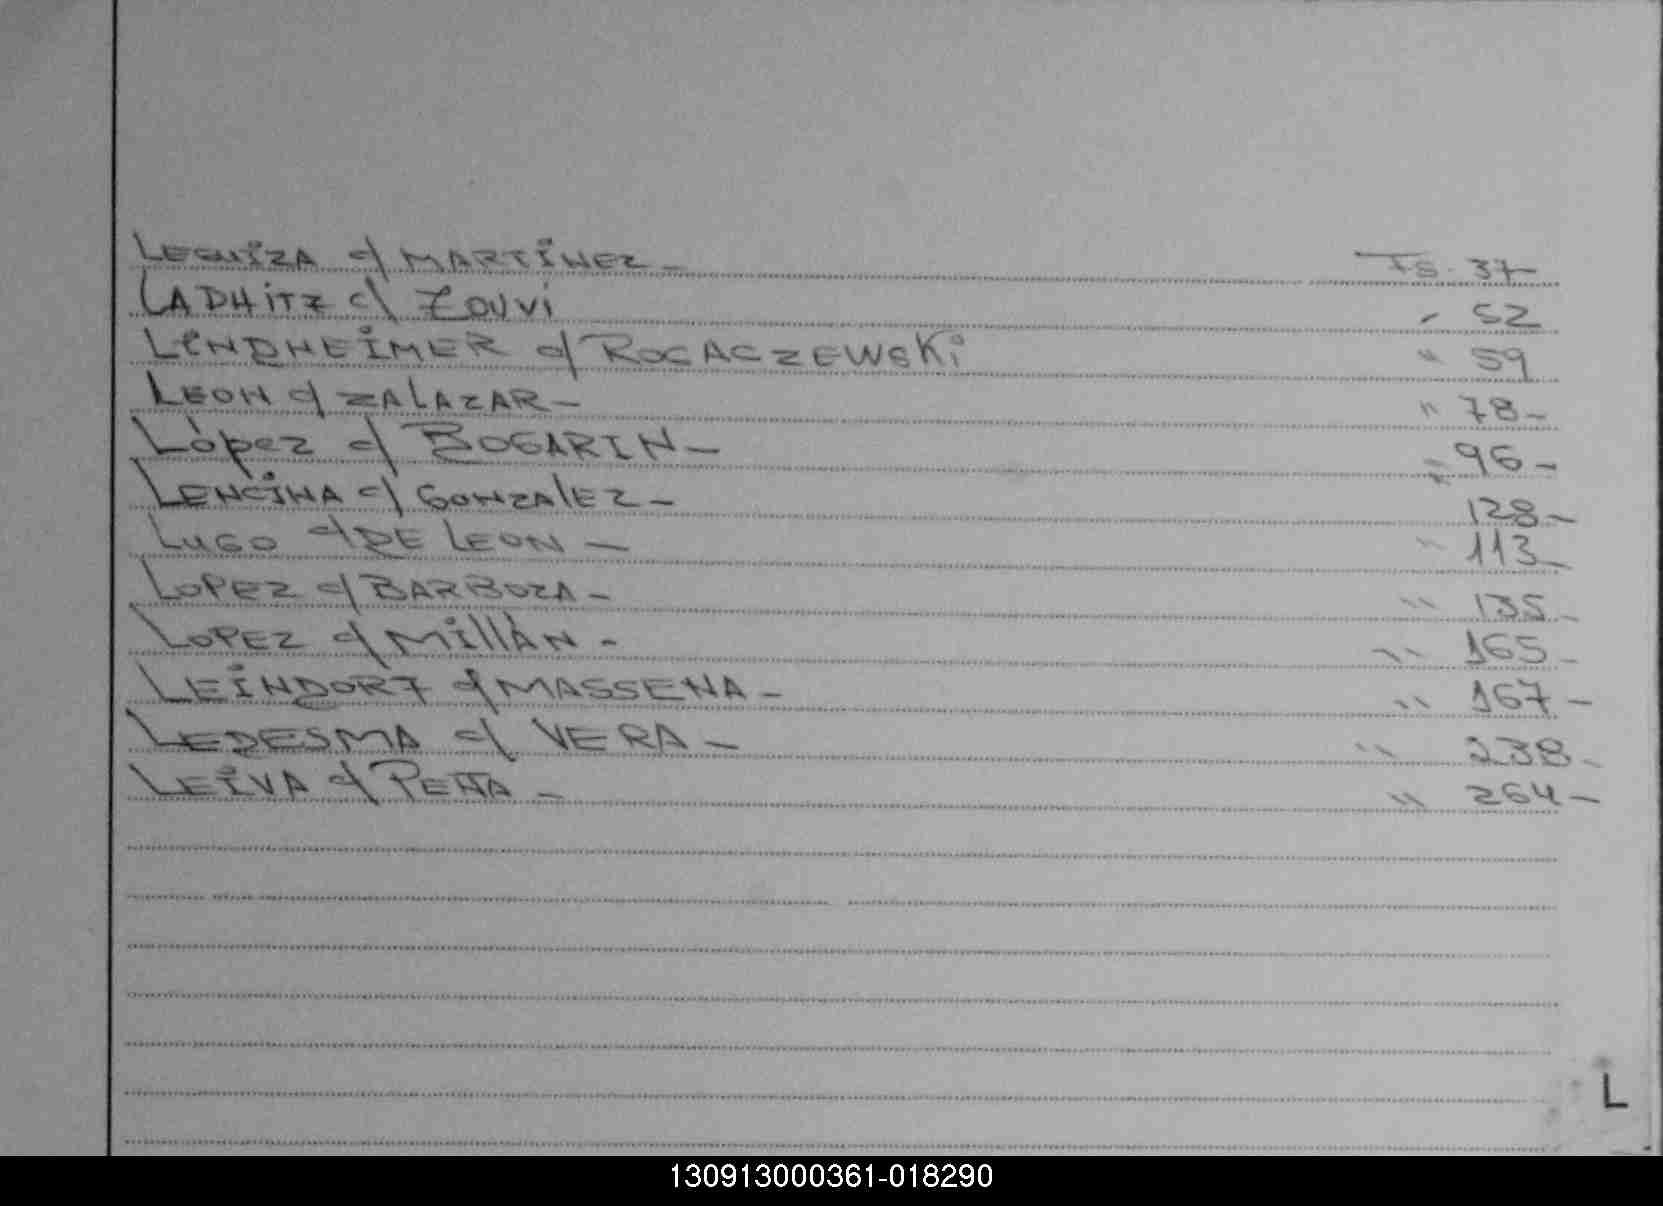 LEGUIZA c/ MARTINEZ - Fs. 37
LADHITZ c/ ZOUVI " 52
LINDHEIMER c/ ROGACZEWSKI " 59
LEON c/ ZALAZAR - " 78 -
Lòpez c/ BOGARIN - " 96 -
LENCINA c/ GONZALEZ - 128 -
LUGO c/ DE LEON - " 113 -
LOPEZ c/ BARBOZA - " 135 -
LOPEZ c/ MILLÀN - " 165 -
LEINDORF c/ MASSENA - " 167 -
LEDESMA c/ VERA - " 238 -
LEIVA c/ PEÑA - " 264 -
L
130913000361-018290